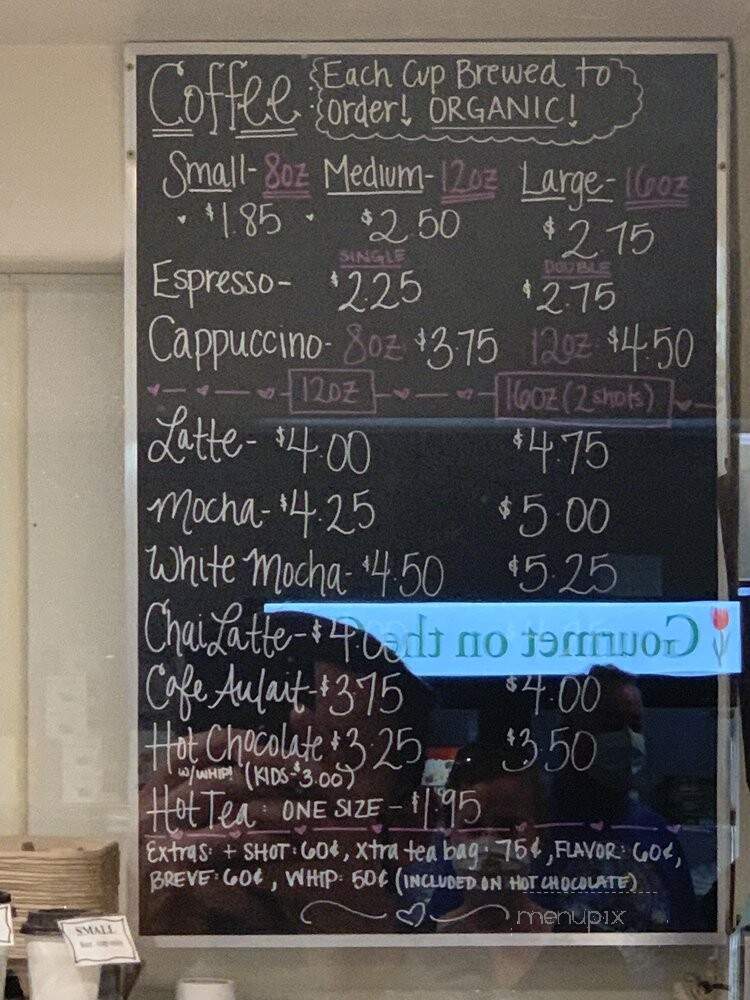 Coffee: Each Cup Brewed to
order! ORGANIC!
Small- 8oz Medium- 12oz Large- 16oz
$1.85 $2.50 $2.75
SINGLE DOUBLE
Espresso- $2.25 $2.75
Cappuccino- 8oz $3.75 12oz $4.50
12oz 16oz (2 shots)
Latte- $4.00 $4.75
Mocha- $4.25 $5.00
White Mocha- $4.50 $5.25
Chai Latte- $4.00
Gourmet on the
Cafe Aulait- $3.75 $4.00
Hot Chocolate $3.25 $3.50
w/WHIP! (KIDS-$3.00)
Hot Tea: ONE SIZE - $1.95
Extras: + SHOT: 60¢, Xtra tea bag: 75¢, FLAVOR: 60¢,
BREVE: 60¢, WHIP: 50¢ (INCLUDED ON HOT CHOCOLATE)
menupix
SMALL